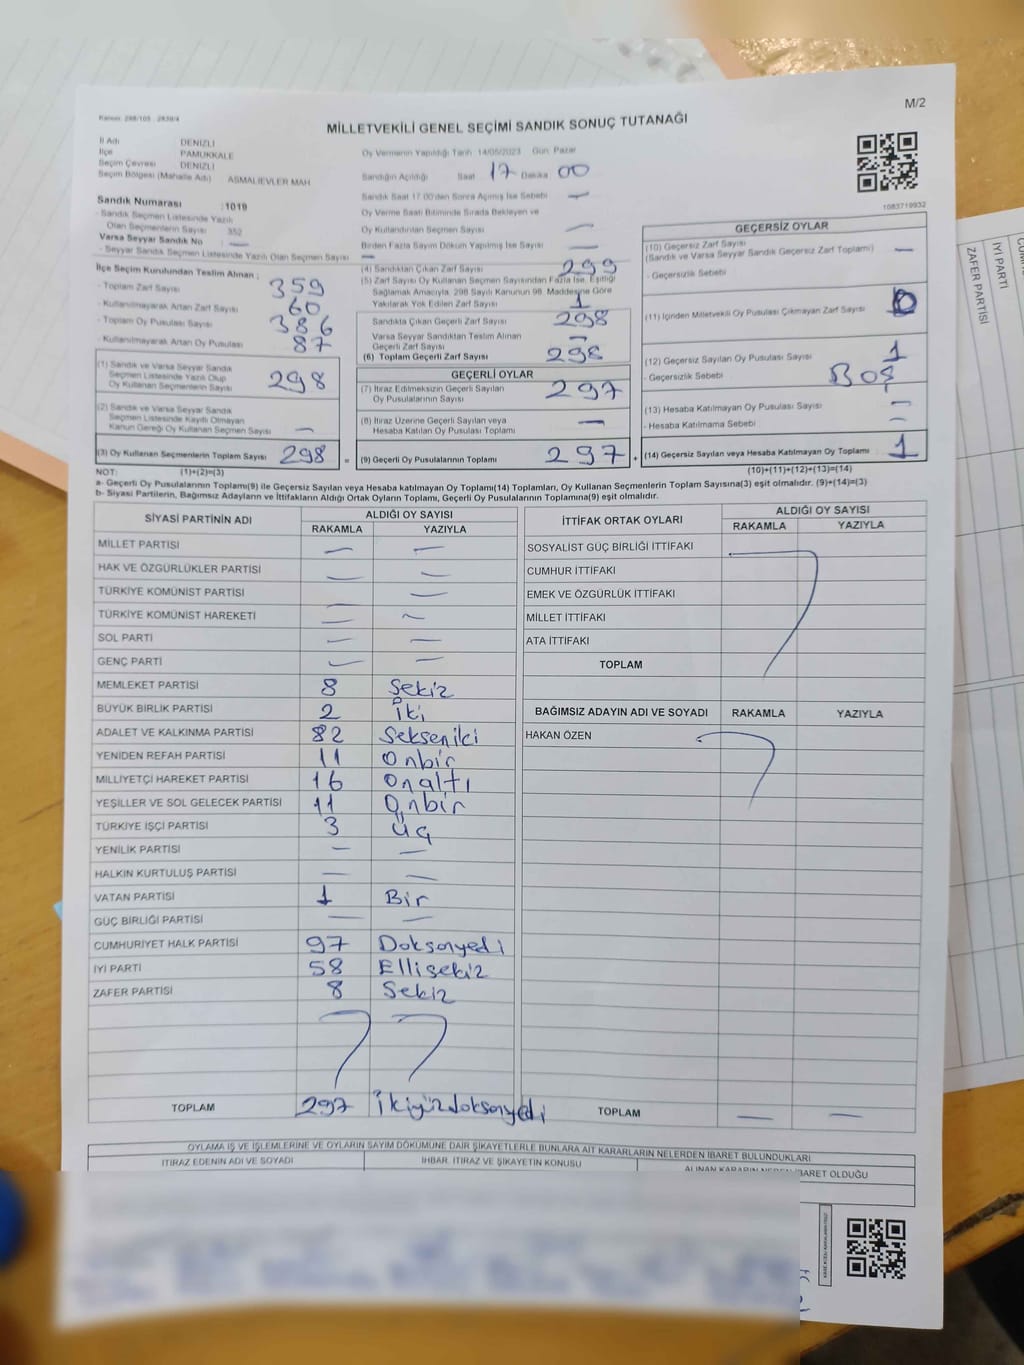 Kanun: 298/105 - 2839/4
M/2
MİLLETVEKİLİ GENEL SEÇİMİ SANDIK SONUÇ TUTANAĞI
İl Adı DENİZLİ
İlçe PAMUKKALE
Seçim Çevresi DENİZLİ
Seçim Bölgesi (Mahalle Adı) ASMALIEVLER MAH
Oy Vermenin Yapıldığı Tarih 14/05/2023 Gün: Pazar
Sandığın Açıldığı Saat 17 Dakika 00
Sandık Saat 17.00'den Sonra Açılmış İse Sebebi —
Oy Verme Saati Bitiminde Sırada Bekleyen ve
Oy Kullandırılan Seçmen Sayısı —
Birden Fazla Sayım Döküm Yapılmış İse Sayısı —
1083719932
Sandık Numarası : 1019
- Sandık Seçmen Listesinde Yazılı
Olan Seçmenlerin Sayısı 352
Varsa Seyyar Sandık No —
- Seyyar Sandık Seçmen Listesinde Yazılı Olan Seçmen Sayısı —
İlçe Seçim Kurulundan Teslim Alınan ;
- Toplam Zarf Sayısı 359
- Kullanılmayarak Artan Zarf Sayısı 60
- Toplam Oy Pusulası Sayısı 386
- Kullanılmayarak Artan Oy Pusulası 87
(1) Sandık ve Varsa Seyyar Sandık
Seçmen Listesinde Yazılı Olup
Oy Kullanan Seçmenlerin Sayısı 298
(2) Sandık ve Varsa Seyyar Sandık
Seçmen Listesinde Kayıtlı Olmayan
Kanun Gereği Oy Kullanan Seçmen Sayısı —
(3) Oy Kullanan Seçmenlerin Toplam Sayısı 298
(4) Sandıktan Çıkan Zarf Sayısı 299
(5) Zarf Sayısı Oy Kullanan Seçmen Sayısından Fazla İse, Eşitliği
Sağlamak Amacıyla, 298 Sayılı Kanunun 98. Maddesine Göre
Yakılarak Yok Edilen Zarf Sayısı 1
Sandıkta Çıkan Geçerli Zarf Sayısı 298
Varsa Seyyar Sandıktan Teslim Alınan
Geçerli Zarf Sayısı —
(6) Toplam Geçerli Zarf Sayısı 298
GEÇERLİ OYLAR
(7) İtiraz Edilmeksizin Geçerli Sayılan
Oy Pusulalarının Sayısı 297
(8) İtiraz Üzerine Geçerli Sayılan veya
Hesaba Katılan Oy Pusulası Toplamı —
= (9) Geçerli Oy Pusulalarının Toplamı 297 +
GEÇERSİZ OYLAR
(10) Geçersiz Zarf Sayısı
(Sandık ve Varsa Seyyar Sandık Geçersiz Zarf Toplamı) —
- Geçersizlik Sebebi
(11) İçinden Milletvekili Oy Pusulası Çıkmayan Zarf Sayısı
(12) Geçersiz Sayılan Oy Pusulası Sayısı 1
- Geçersizlik Sebebi Boş
(13) Hesaba Katılmayan Oy Pusulası Sayısı —
- Hesaba Katılmama Sebebi —
(14) Geçersiz Sayılan veya Hesaba Katılmayan Oy Toplamı 1
NOT: (1)+(2)=(3)
(10)+(11)+(12)+(13)=(14)
a- Geçerli Oy Pusulalarının Toplamı(9) ile Geçersiz Sayılan veya Hesaba katılmayan Oy Toplamı(14) Toplamları, Oy Kullanan Seçmenlerin Toplam Sayısına(3) eşit olmalıdır. (9)+(14)=(3)
b- Siyasi Partilerin, Bağımsız Adayların ve İttifakların Aldığı Ortak Oyların Toplamı, Geçerli Oy Pusulalarının Toplamına(9) eşit olmalıdır.
SİYASİ PARTİNİN ADI ALDIĞI OY SAYISI
RAKAMLA YAZIYLA
MİLLET PARTİSİ — —
HAK VE ÖZGÜRLÜKLER PARTİSİ — —
TÜRKİYE KOMÜNİST PARTİSİ — —
TÜRKİYE KOMÜNİST HAREKETİ — —
SOL PARTİ — —
GENÇ PARTİ — —
MEMLEKET PARTİSİ 8 Sekiz
BÜYÜK BİRLİK PARTİSİ 2 İki
ADALET VE KALKINMA PARTİSİ 82 Sekseniki
YENİDEN REFAH PARTİSİ 11 Onbir
MİLLİYETÇİ HAREKET PARTİSİ 16 Onaltı
YEŞİLLER VE SOL GELECEK PARTİSİ 11 Onbir
TÜRKİYE İŞÇİ PARTİSİ 3 Üç
YENİLİK PARTİSİ — —
HALKIN KURTULUŞ PARTİSİ — —
VATAN PARTİSİ 1 Bir
GÜÇ BİRLİĞİ PARTİSİ — —
CUMHURİYET HALK PARTİSİ 97 Doksanyedi
İYİ PARTİ 58 Ellisekiz
ZAFER PARTİSİ 8 Sekiz
TOPLAM 297 İkiyüzdoksanyedi
İTTİFAK ORTAK OYLARI ALDIĞI OY SAYISI
RAKAMLA YAZIYLA
SOSYALİST GÜÇ BİRLİĞİ İTTİFAKI
CUMHUR İTTİFAKI
EMEK VE ÖZGÜRLÜK İTTİFAKI
MİLLET İTTİFAKI
ATA İTTİFAKI
TOPLAM
BAĞIMSIZ ADAYIN ADI VE SOYADI RAKAMLA YAZIYLA
HAKAN ÖZEN
TOPLAM — —
OYLAMA İŞ VE İŞLEMLERİNE VE OYLARIN SAYIM DÖKÜMÜNE DAİR ŞİKAYETLERLE BUNLARA AİT KARARLARIN NELERDEN İBARET BULUNDUKLARI
İTİRAZ EDENİN ADI VE SOYADI İHBAR, İTİRAZ VE ŞİKAYETİN KONUSU ALINAN KARARIN NEDEN İBARET OLDUĞU
İYİ PARTİ
ZAFER PARTİSİ